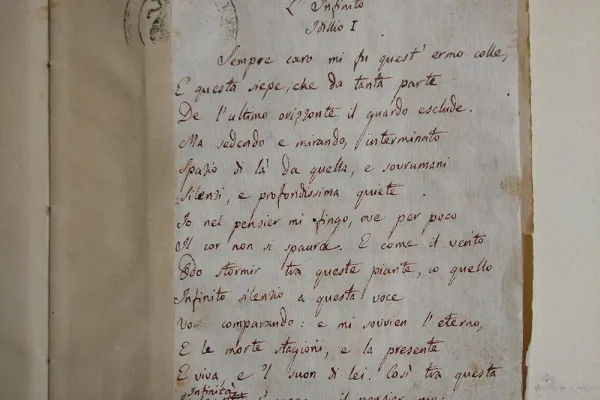 L' Infinito
Idillio I
Sempre caro mi fu quest' ermo colle,
E questa siepe, che da tanta parte
De l'ultimo orizzonte il guardo esclude.
Ma sedendo e mirando, interminato
Spazio di là da quella, e sovrumani
Silenzi, e profondissima quiete
Io nel pensier mi fingo, ove per poco
Il cor non si spaura. E come il vento
Odo stormir tra queste piante, io quello
Infinito silenzio a questa voce
Vo comparando: e mi sovvien l'eterno,
E le morte stagioni, e la presente
E viva, e 'l suon di lei. Così tra questa
Infinità
il pensier mio